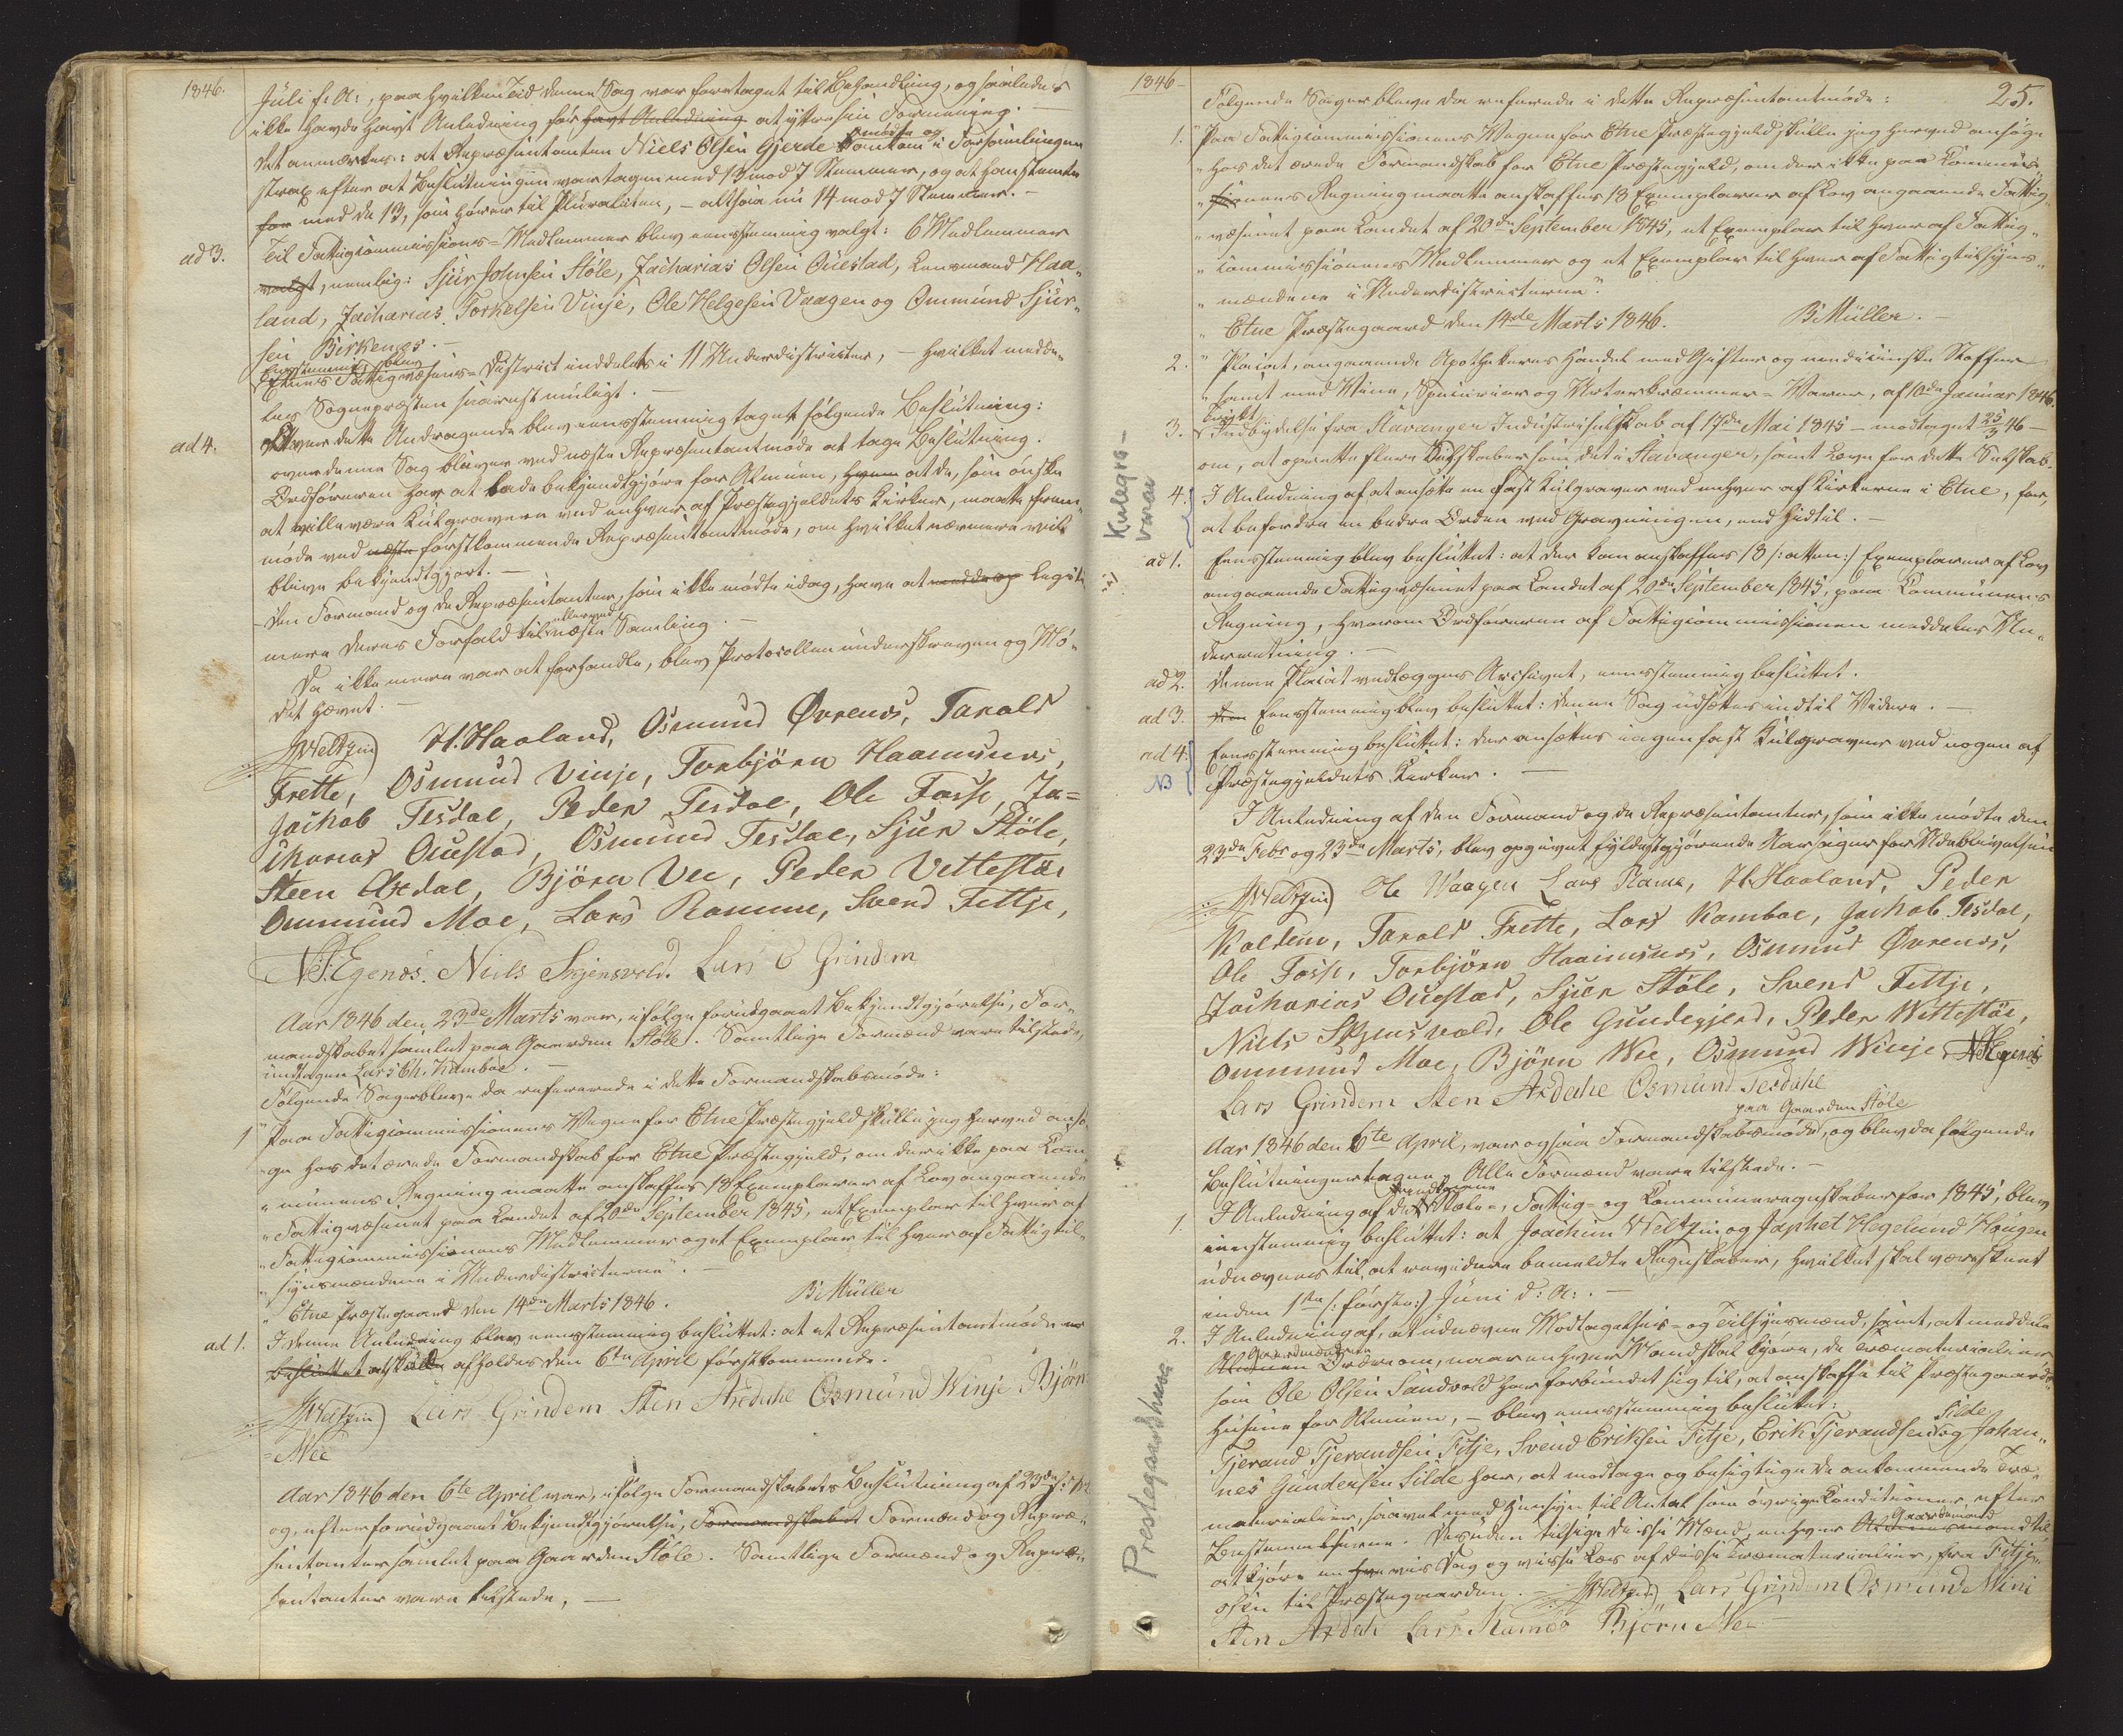 1846.
Juli f: A:, paa hvilken Tid denne Sag var foretaget til Behandling, og saaledes
ikke havde havt Anledning før havt Anledning at yttre sin Formening.
Det anmærkes: at Repræsentanten Niels Olsen Gjerde mødte og fremkom i Forsamlingen
strax efter at Beslutningen var tagen med 13 mod 7 Stemmer, og at han stemte
for med de 13, som hører til Pluraliten, – altsaa nu 14 mod 7 Stemmer. –
ad 3. Til Fattigcommissions-Medlemmer blev eensstemmig valgt: 6 Medlemmer
valgt, nemlig: Sjur Johnsen Støle, Zacharias Olsen Ouestad, Lensmand Haa„
land, Zacharias Torkelsen Vinje, Ole Helgesen Vaagen og Ommund Sjur„
sen Birkenes. –
Eensstemmig blev
Etnes Fattigvæsens-District inddelets i 11 Underdistricter, – hvilket medde„
les Sognepræsten snarest muligt. –
ad 4. Over dette Andragende blev eensstemmig taget følgende Beslutning:
over denne Sag bliver ved næste Repræsentantmøde at tage Beslutning.
Ordføreren har at lade bekjendtgjøre for Almuen, hvem at de, som ønske
at ville være Kulgravere ved enhver af Præstegjeldets Kirker, maatte frem„
møde ved næste førstkommende Repræsentantmøde, om hvilket nærmere vil
blive bekjendtgjort. –
– Den Formand og de Repræsentanter, som ikke mødte idag, have at meddele op legiti„
mere deres Forfald til eller ved næste Samling. –
Da ikke mere var at forhandle, blev Protocollen underskreven og Mø„
det hævet. –
JWeltzin) H. Haaland, Osmund Øvrenes, Tarald
Frette, Osmund Vinje, Torbjörn Haaimsnes,
Jachob Tesdal, Peder Tesdal, Ole Fosse, Za=
charias Ouestad, Osmund Tesdal, Sjur Støle,
Steen Axdal, Björn Vee, Peder Vettestöe
Ommund Moe, Lars Ramme, Svend Fettje,
N.T. Egenes. Niels Skjensvold. Lars O Grindem
Aar 1846 den 23de Marts var, ifølge forudgaaet Bekjendtgjørelse, For„
mandskabet samlet paa Gaarden Støle. Samtlige Formænd vare tilstede,
undtagen Lars Ch. Kamboe. –
Følgende Sager bleve da refererede i dette Formandskabsmøde:
1 " Paa Fattigcommissionens Vegne for Etne Præstegjeld skulle jeg herved ansø„
" ge hos det ærede Formandskab for Etne Præstegjeld, om der ikke paa Com„
" munens Regning maatte anskaffes 18 Exemplarer af Lov angaaende
" Fattigvæsenet paa Landet af 20de September 1845, et Exemplar til hver af
" Fattigcommissionens Medlemmer og et Exemplar til hver af Fattigtil„
" synsmændene i Underdistricterne". –
" Etne Præstegaard den 14de Marts 1846. B: Müller
ad 1. I denne Anledning blev eensstemmig besluttet: at et Repræsentantmøde
besluttet at skulle afholdes den 6te April førstkommende.
JWeltzin) Lars Grindem Sten Axdahl Osmund Winje Bjørn
= Wee
Aar 1846 den 6te April var, ifølge Formandskabets Beslutning af 23de f: M:
og, efter forudgaaet Bekjendtgjørelse, Formandskabet Formænd og Repræ„
sentanter samlet paa Gaarden Støle. Samtlige Formænd og Repræ„
sentanter vare tilstede, –
1846 –
25.
Følgende Sager bleve da refererede i dette Repræsentantmøde:
1. " Paa Fattigcommissionens Vegne for Etne Præstegjeld skulle jeg herved ansøge
" hos det ærede Formandskab for Etne Præstegjeld, om der ikke paa Commu„
" nens Regning maatte anskaffes 18 Exemplarer af Lov angaaende Fattig„
" væsenet paa Landet af 20de September 1845, et Exemplar til hver af Fattig„
" commissionens Medlemmer og et Exemplar til hver af Fattigtilsyns„
" mændene i Underdistricterne".
" Etne Præstegaard den 14de Marts 1846. B: Müller. –
2. " Placat, angaaende Apothekeres Handel med Gifter og medicinske Stoffer
" samt med Vine, Specerier og Urtekræmmer-Varer, af 10de Januar 1846.
3. Indbydelse fra Stavanger Industrieselskab af 17de Mai 1845 – modtaget 25/3 46 –
om, at oprette flere Selskaber som det i Stavanger, samt Love for dette Selskab.
4. I Anledning af at ansætte en fast Kulgraver ved enhver af Kirkerne i Etne, for,
at befordre en bedre Orden ved Gravningen, end hidtil. –
Kulegra-
varar
ad 1. Eensstemmig blev besluttet: at der kan anskaffes 18 /: atten :/ Exemplarer af Lov
angaaende Fattigvæsenet paa Landet af 20de September 1845, paa Communens
Regning, hvorom Ordføreren af Fattigcommissionen meddeles Un„
derretning. –
ad 2. Denne Placat vedlægges Archivet, eensstemmig besluttet.
ad 3. Eensstemmig blev besluttet: denne Sag udsættes indtil Videre. –
ad 4. Eensstemmig besluttet: der ansættes ingen fast Kulgraver ved nogen af
NB Præstegjeldets Kirker. –
I Anledning af den Formand og de Repræsentanter, som ikke mødte den
23de Febr og 23de Marts, blev opgivet fyldestgjørende Aarsager for Udeblivelsen
JWeltzin) Ole Waagen Lars Rame, H. Haaland, Peder
Kaldem, Tarald Frette, Lars Kamboe, Jachob Tesdal,
Ole Fosse, Torbjörn Haaimsnes, Osmund Øvrenes,
Zacharias Ouestad, Sjur Støle, Svend Fettje,
Niels Skjensvold, Ole Gundegjerd, Peder Wettestöe,
Ommund Moe, Björn Wee, Osmund Winje N.T. Egenes
Lars Grindem Sten Axdahl Osmund Tesdahl
Aar 1846 den 6te April, var ogsaa Formandskabsmøde paa Gaarden Støle, og blev da følgende
Beslutninger tagne. Alle Formænd vare tilstede. –
1. I Anledning af de Skole-, Fattig- og Communeregnskaber for 1845, blev
eensstemmig besluttet: at Joachim Weltzin og Japhet Hegelund Haugen
udnævnes til, at revidere bemeldte Regnskaber, hvilket skal være skeet
inden 1ste /: første :/ Juni d: A:. –
2. I Anledning af, at udnævne Modtagelses- og Tilsynsmænd, samt, at meddele
Almuen Gaardmændene Ordre om, naar enhver Mand skal kjøre, de Træmaterialier
som Ole Olsen Sandvold har forbundet sig til, at anskaffe til Præstegaards„
husene for Almuen, – blev eensstemmig besluttet:
Tjerand Tjerandsen Fitje, Svend Eriksen Fitje, Erik Tjerandsen Silde og Johan„
nes Gundersen Silde har, at modtage og besigtige de ankommende Træ„
materialier, saavel med Hensyn til Antal som øvrige Conditioner, efter
Bestemmelserne. Desuden tilsige disse Mænd, enhver Almuesmand Gaardmand til
at kjøre en vis Dag og visse Læs af disse Træmaterialier, fra Fitje„
øen til Præstegaarden. – JWeltzin) Lars Grindem Osmund Wini
Sten Axdah Lars Kamboe Bjørn Wee
Prestegaardshusa